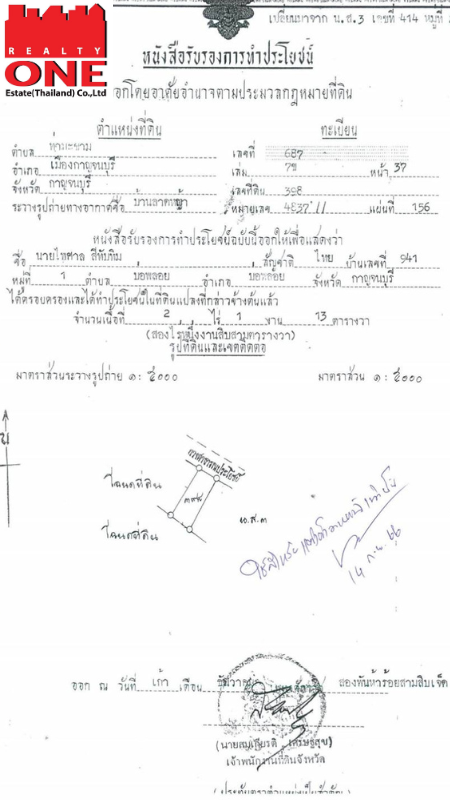 เปลี่ยนมาจาก น.ส.3 เลขที่ 414 หมู่ที่
REALTY
ONE
Estate(Thailand) Co.,Ltd
หนังสือรับรองการทำประโยชน์
ออกโดยอาศัยอำนาจตามประมวลกฎหมายที่ดิน
ตำแหน่งที่ดิน ทะเบียน
ตำบล ท่ามะขาม เลขที่ 687
อำเภอ เมืองกาญจนบุรี เล่ม 7ข หน้า 37
จังหวัด กาญจนบุรี เลขที่ดิน 398
ระวางรูปถ่ายทางอากาศชื่อ บ้านลาดหญ้า หมายเลข 4837 II แผ่นที่ 156
หนังสือรับรองการทำประโยชน์ฉบับนี้ออกให้เพื่อแสดงว่า
ชื่อ นายไพศาล สีทับทิม สัญชาติ ไทย บ้านเลขที่ 941
หมู่ที่ 1 ตำบล บ่อพลอย อำเภอ บ่อพลอย จังหวัด กาญจนบุรี
ได้ครอบครองและได้ทำประโยชน์ในที่ดินแปลงที่กล่าวข้างต้นแล้ว
จำนวนเนื้อที่ 2 ไร่ 1 งาน 13 ตารางวา
(สองไร่หนึ่งงานสิบสามตารางวา)
รูปที่ดินและเขตติดต่อ
มาตราส่วนระวางรูปถ่าย ๑: ๕๐๐๐ มาตราส่วน ๑: ๕๐๐๐
น
ทางสาธารณประโยชน์
โฉนดที่ดิน
๓๙๘
น.ส.๓
โฉนดที่ดิน
14 ก.ย. 66
ออก ณ วันที่ เก้า เดือน ธันวาคม พุทธศักราช สองพันห้าร้อยสามสิบเจ็ด
(นายสมเกียรติ เศรษฐสุข)
เจ้าพนักงานที่ดินจังหวัด
(ประทับตราตำแหน่งเป็นสำคัญ)